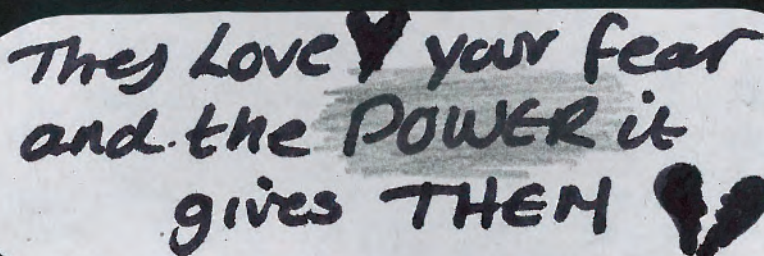 They Love your fear
and the POWER it
gives THEM